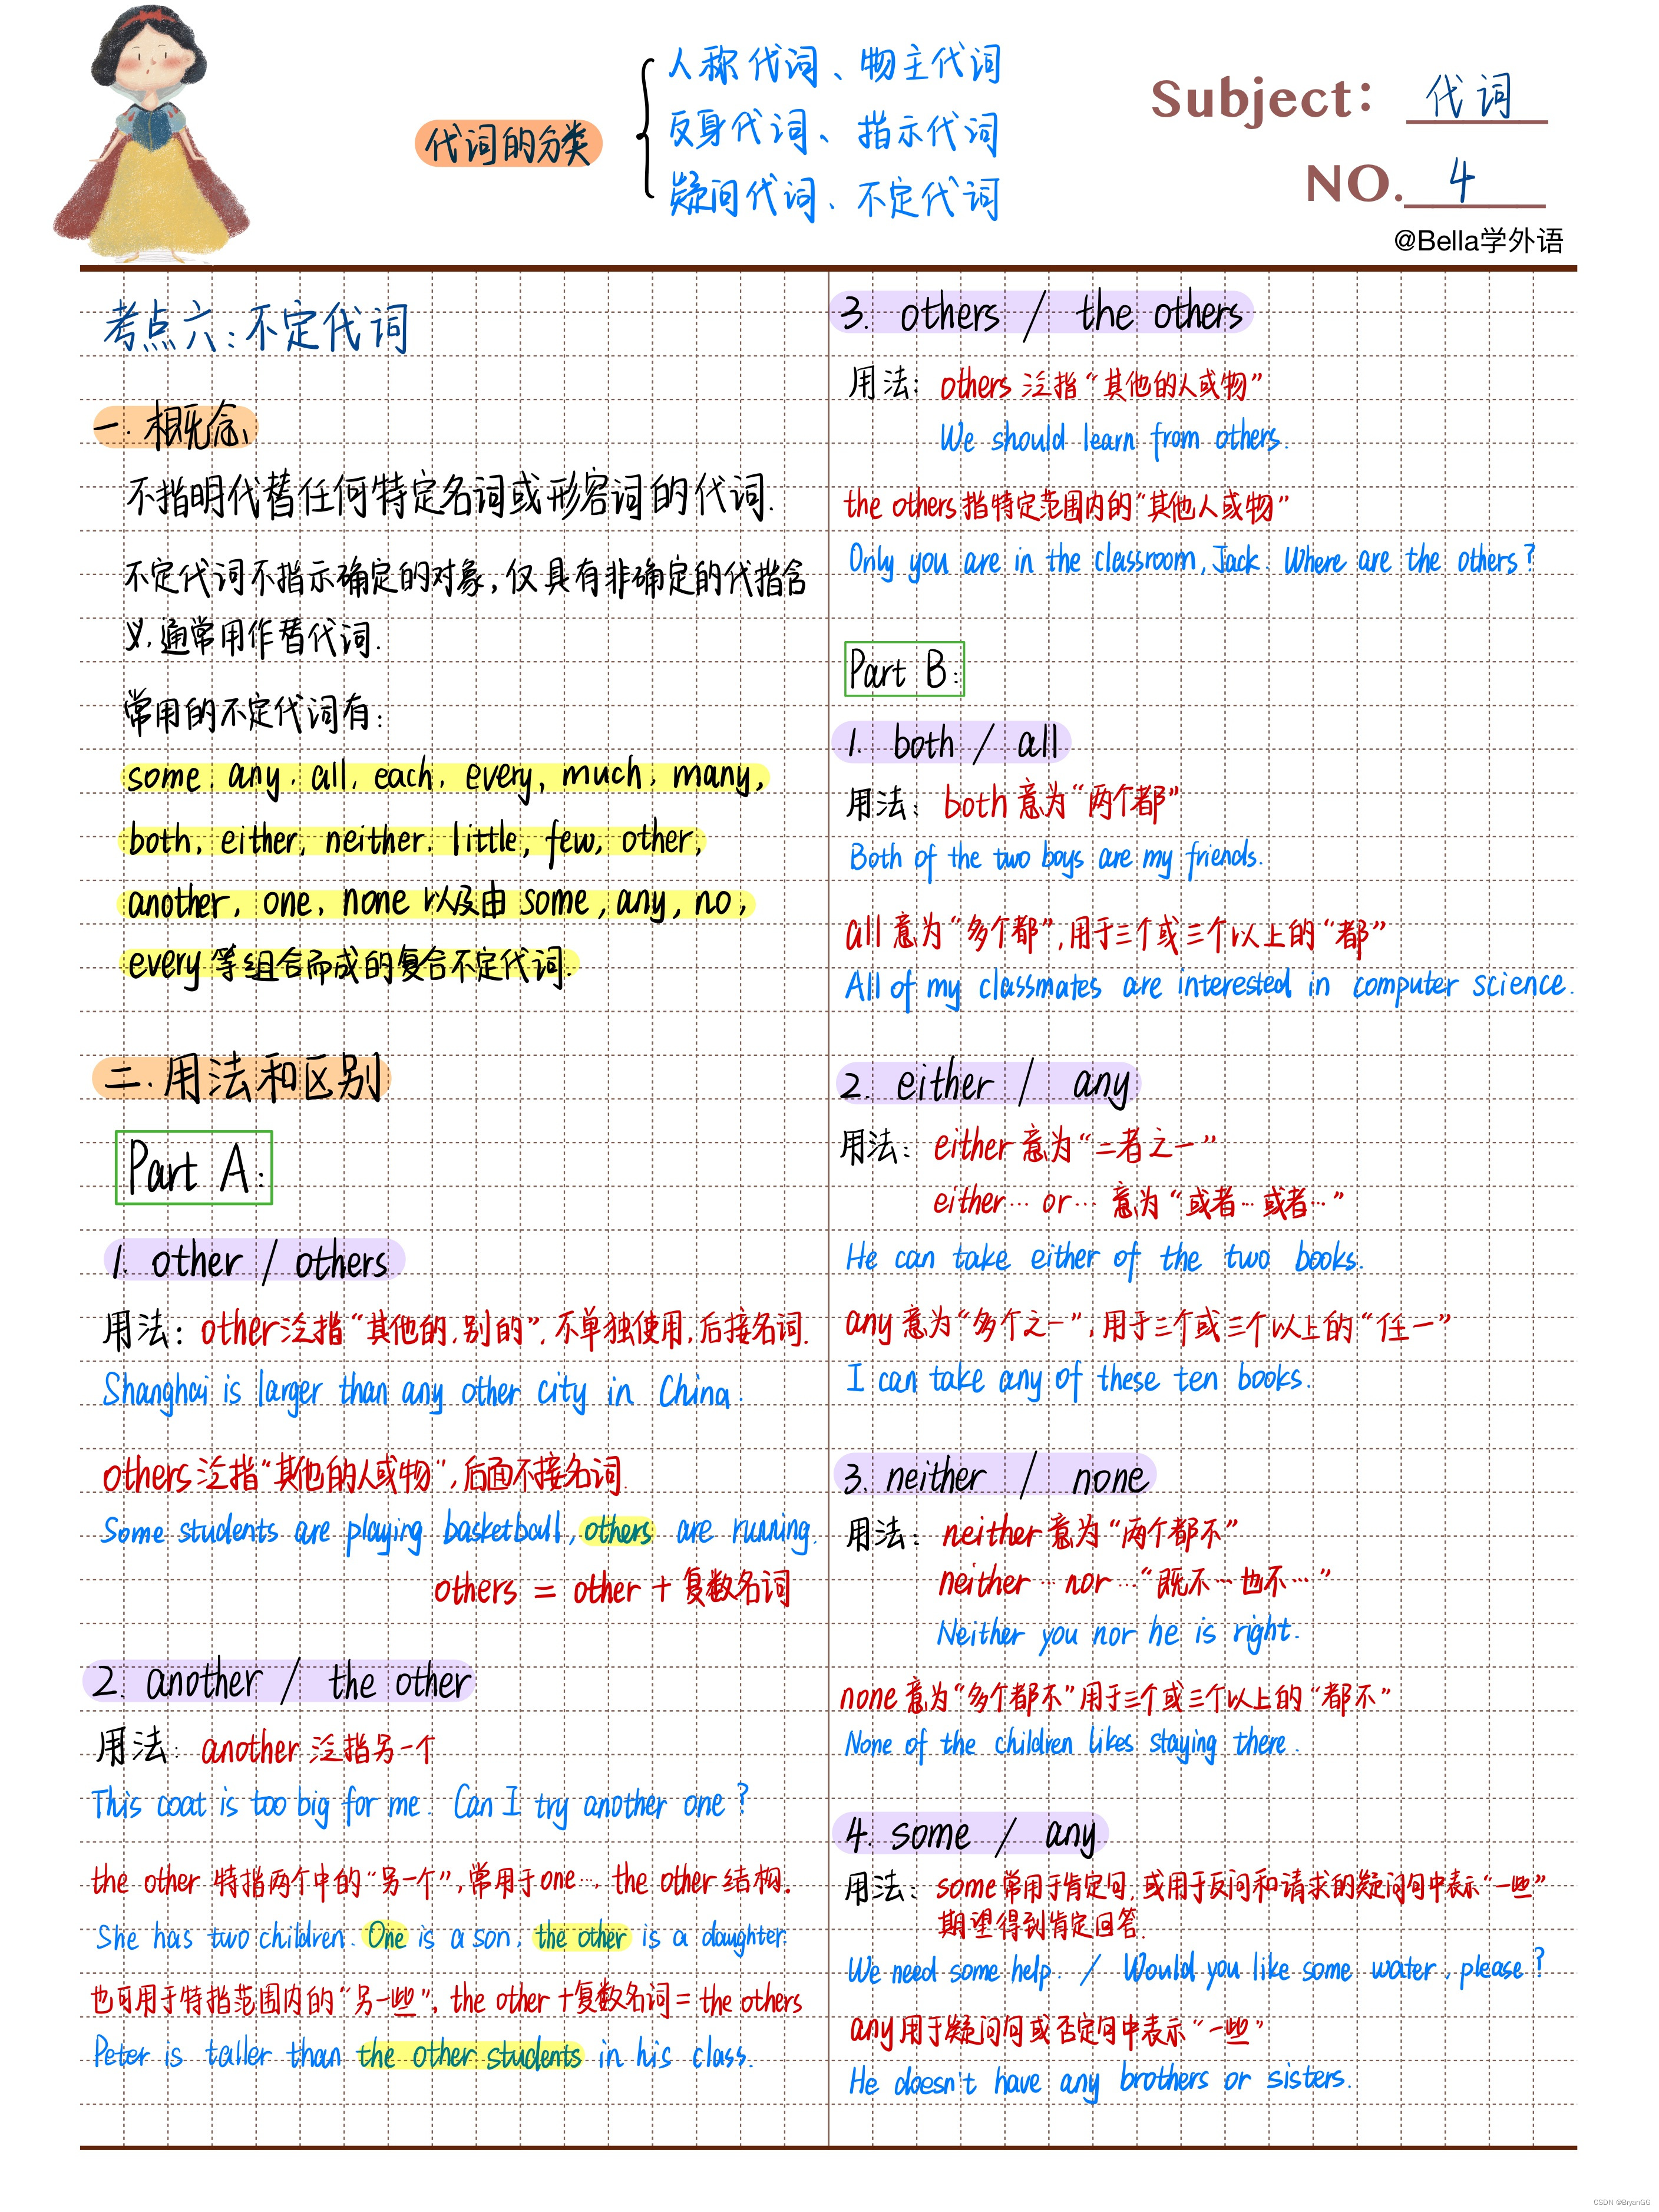 代词的分类
人称代词、物主代词
反身代词、指示代词
疑问代词、不定代词
Subject: 代词
NO. 4
@Bella学外语
考点六:不定代词
一. 概念
不指明代替任何特定名词或形容词的代词.
不定代词不指示确定的对象,仅具有非确定的代指含
义,通常用作替代词.
常用的不定代词有:
some, any, all, each, every, much, many,
both, either, neither, little, few, other,
another, one, none 以及由 some, any, no,
every 等组合而成的复合不定代词.
二. 用法和区别
Part A:
1. other / others
用法: other泛指“其他的,别的”,不单独使用,后接名词.
Shanghai is larger than any other city in China.
others泛指“其他的人或物”,后面不接名词
Some students are playing basketball, others are running.
others = other + 复数名词
2. another / the other
用法: another 泛指另一个
This coat is too big for me. Can I try another one?
the other 特指两个中的“另一个”,常用于one…, the other 结构.
She has two children. One is a son, the other is a daughter.
也可用于特指范围内的“另一些”, the other + 复数名词 = the others
Peter is taller than the other students in his class.
3. others / the others
用法: others 泛指“其他的人或物”
We should learn from others.
the others 指特定范围内的“其他人或物”
Only you are in the classroom, Jack. Where are the others?
Part B:
1. both / all
用法: both 意为“两个都”
Both of the two boys are my friends.
all 意为“多个都”,用于三个或三个以上的“都”
All of my classmates are interested in computer science.
2. either / any
用法: either 意为“二者之一”
either… or… 意为“或者…或者…”
He can take either of the two books.
any 意为“多个之一”,用于三个或三个以上的“任一”
I can take any of these ten books.
3. neither / none
用法: neither 意为“两个都不”
neither … nor …“既不…也不…”
Neither you nor he is right.
none 意为“多个都不”用于三个或三个以上的“都不”
None of the children likes staying there.
4. some / any
用法: some 常用于肯定句,或用于反问和请求的疑问句中表示“一些”
期望得到肯定回答.
We need some help. / Would you like some water, please?
any 用于疑问句或否定句中表示“一些”
He doesn't have any brothers or sisters.
CSDN @BryanGG